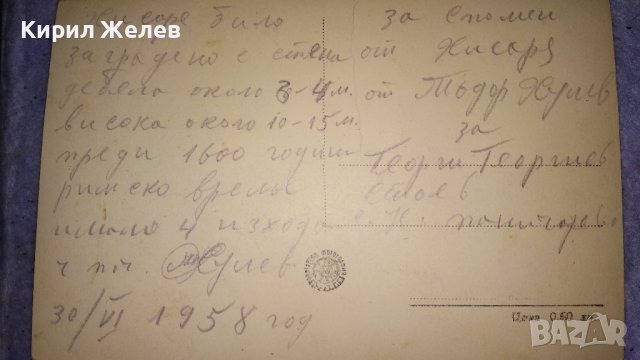 Кирил Желев
Хисаря било
заградено с стена
дебела около 3-4 м.
висока около 10-15 м.
преди 1600 години
римско време
имало 4 изхода
Жулев
30/VI 1958 год
за спомен
от Хисаря
от Тодор Жулев
за
Георги Георгиев
Стоев
Цена 0.60 лв.
bazar